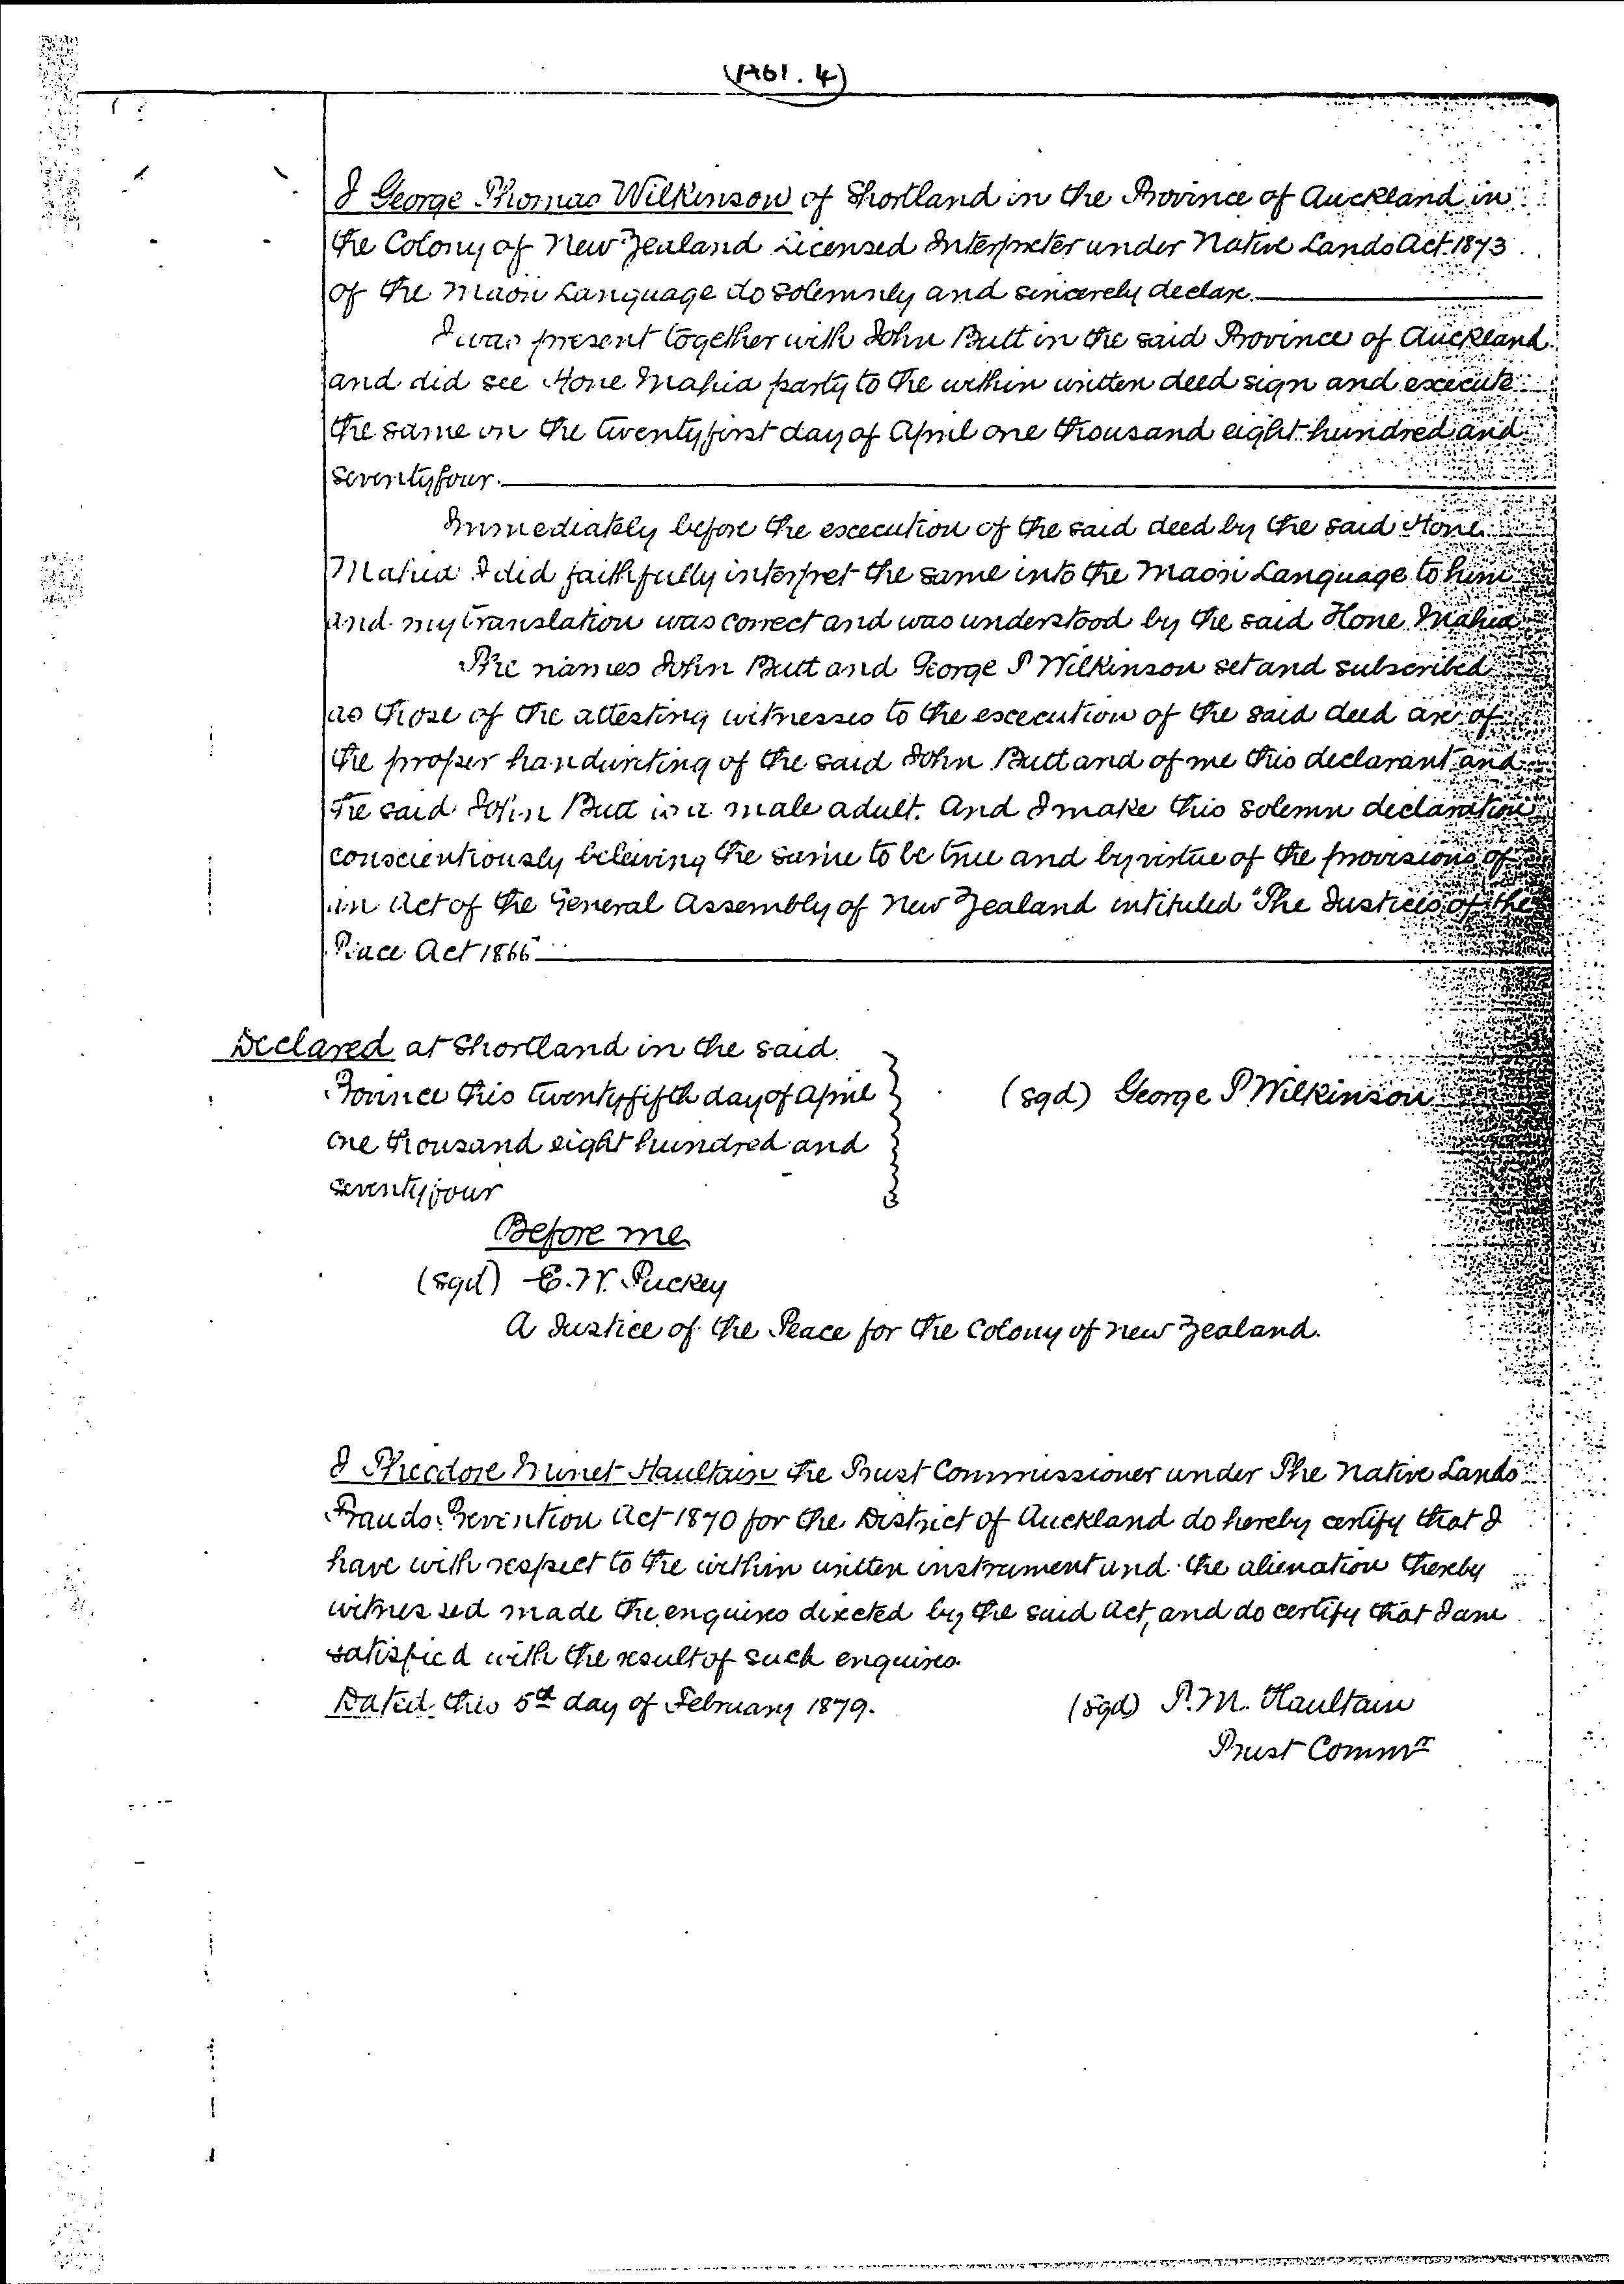 (A61. 4)
I George Thomas Wilkinson of Shortland in the Province of Auckland in
the Colony of New Zealand Licensed Interpreter under Native Lands Act 1873
of the Maori Language do solemnly and sincerely declare.
I was present together with John Butt in the said Province of Auckland
and did see Hone Mahia party to the within written deed sign and execute
the same on the twentyfirst day of April one thousand eight hundred and
seventyfour.
Immediately before the execution of the said deed by the said Hone
Mahia I did faithfully interpret the same into the Maori Language to him
and my translation was correct and was understood by the said Hone Mahia
The names John Butt and George T Wilkinson set and subscribed
as those of the attesting witnesses to the execution of the said deed are of
the proper handwriting of the said John Butt and of me this declarant and
the said John Butt is a male adult. And I make this solemn declaration
conscientiously beleiving the same to be true and by virtue of the provisions of
an Act of the General Assembly of New Zealand intituled "The Justices of the
Peace Act 1866"
Declared at Shortland in the said
Province this twentyfifth day of April
one thousand eight hundred and
seventyfour
(sgd) George T Wilkinson
Before me
(sgd) E. W. Puckey
A Justice of the Peace for the Colony of New Zealand.
I Theodore Minet Haultain the Trust Commissioner under The Native Lands
Frauds Prevention Act 1870 for the District of Auckland do hereby certify that I
have with respect to the within written instrument and the alienation thereby
witnessed made the enquires directed by the said Act, and do certify that I am
satisfied with the result of such enquires.
Dated this 5th day of February 1879.
(sgd) T. M. Haultain
Trust Commr